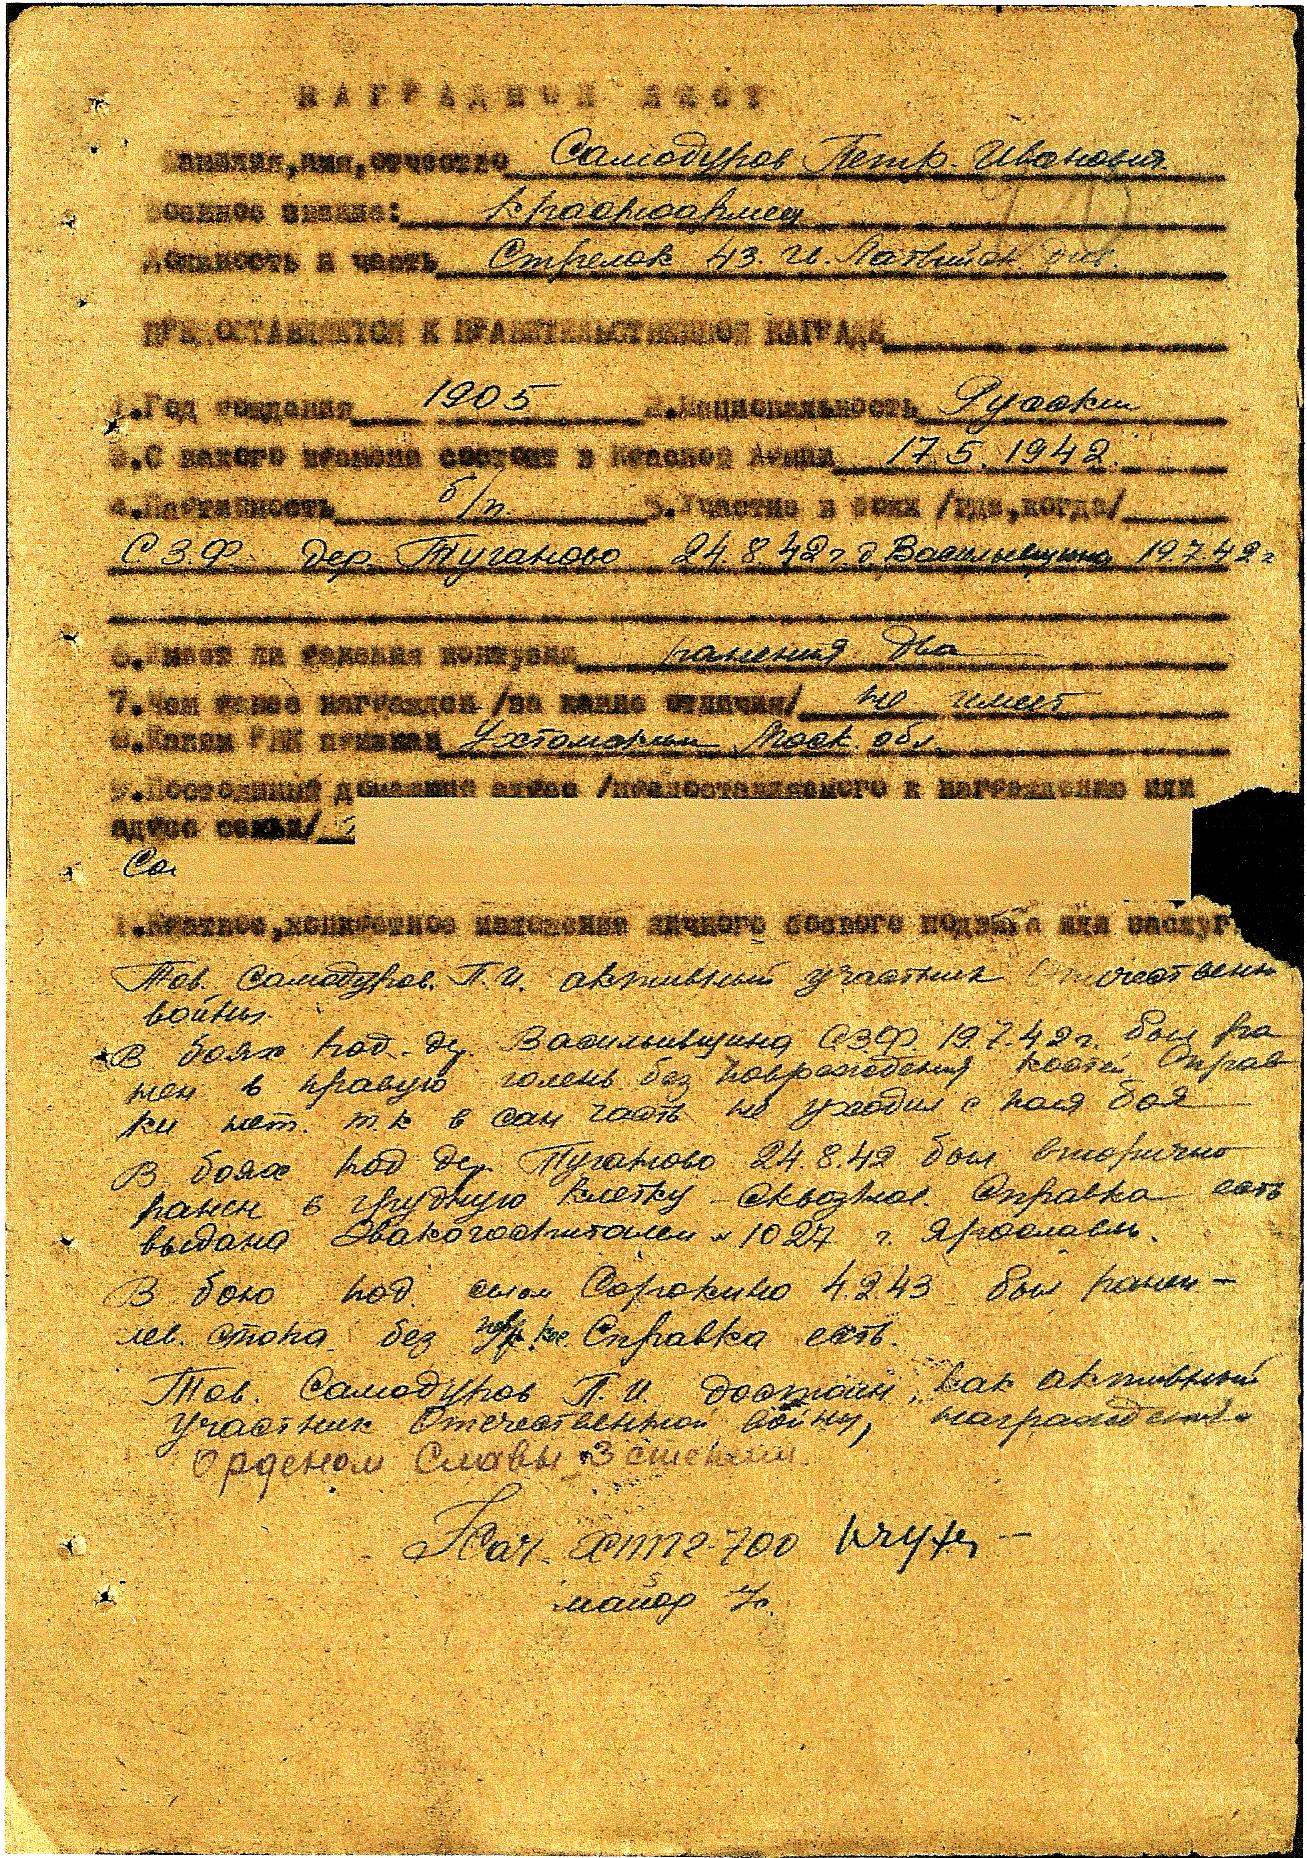 НАГРАДНОЙ ЛИСТ
Фамилия,имя,отчество Самодуров Петр Иванович
Военное звание: красноармеец
Должность и часть Стрелок 43. гв. Латвийск. див.
ПРЕДОСТАВЛЯЕТСЯ К ПРАВИТЕЛЬСТВЕННОЙ НАГРАДЕ
1.Год рождения 1905 2.Национальность Русский
3.С какого времени состоит в Красной Армии 17.5.1942.
4.Партийность б/п. 5.Участие в боях /где,когда/
С.З.Ф. дер. Туганово 24.8.42г. д. Васильевщина 19.7.42г
6.Имеет ли ранения контузии ранения два
7.Чем ранее награжден /за какие отличия/ не имеет
8.Каким РВК призван Ухтомским Моск. обл.
9.Постоянный домашний адрес /предоставляемого к награждению или
адрес семьи/
1.Краткое,конкретное изложение личного боевого подвига или заслуг
Тов. Самодуров. П.И. активный участник Отечественн
войны.
В боях под дер. Васильивщина СЗФ 19.7.42г. был ра
нен в правую голень без повреждения кости Справ
ки нет. т.к в сан часть не уходил с поля боя
В боях под дер. Туганово 24.8.42 был вторично
ранен в грудную клетку - сквозное. Справка есть
выдана Эвакогоспиталем № 1027 г. Ярославль.
В бою под Сорокино 4.2.43 был ранен -
лев. стопа без Справка есть.
Тов. Самодуров П.И. достоин, как активный
участник Отечественной войны, награждения
Орденом Славы 3 степени.
Нач. ХППГ-700
майор